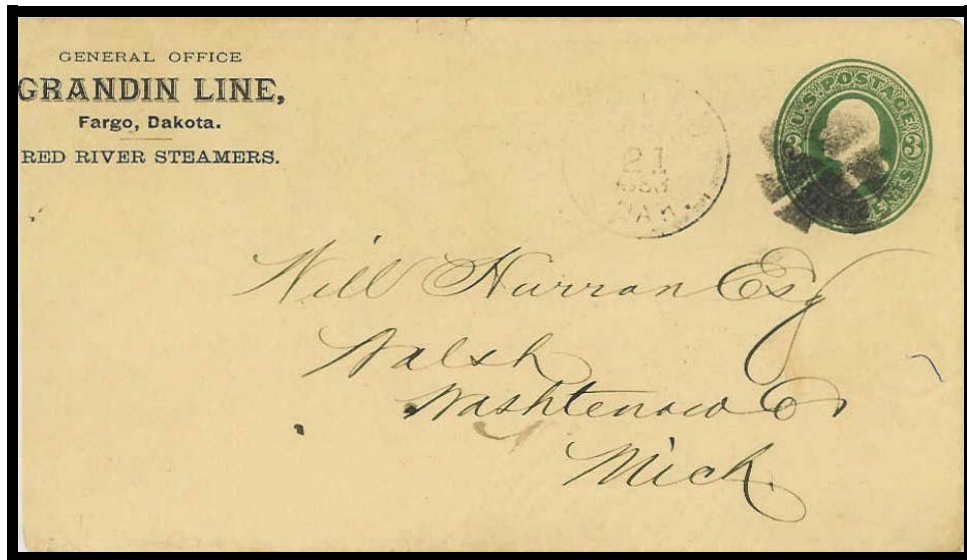 GENERAL OFFICE
GRANDIN LINE,
Fargo, Dakota.
RED RIVER STEAMERS.
21
DAK.
U.S. POSTAGE
3 3
CENTS
Will Hurran Esq
Walsh
Washtenaw Co
Mich.